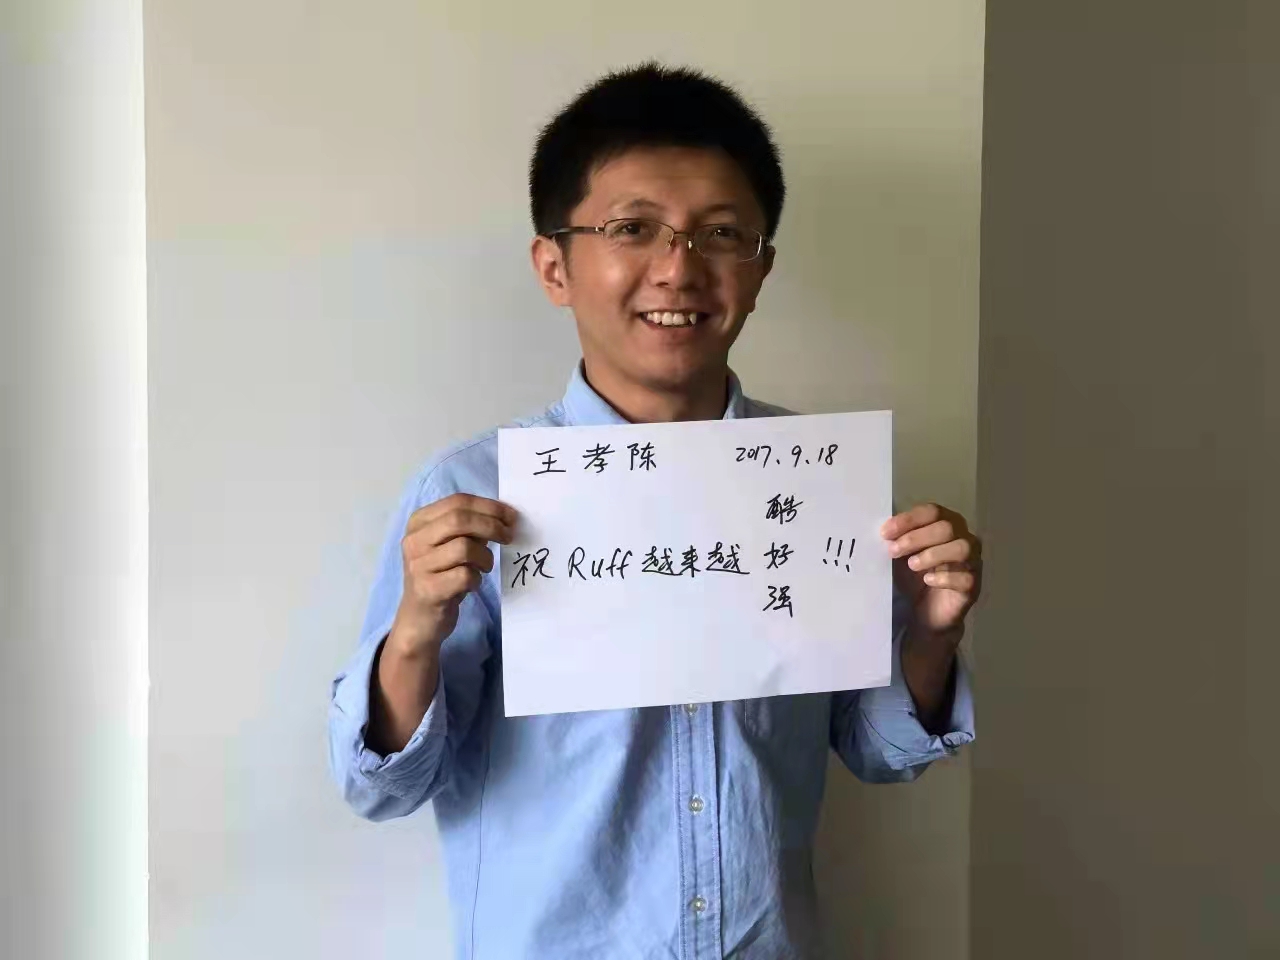 王孝陈 2017.9.18
祝Ruff越来越
酷
好 !!!
强